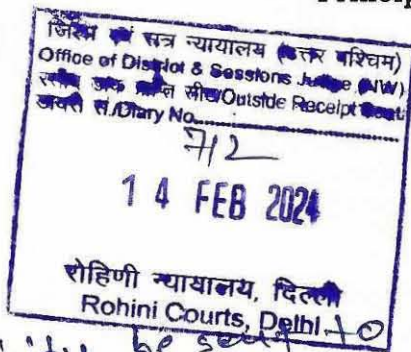 जिला एवं सत्र न्यायालय (उत्तर पश्चिम)
Office of District & Sessions Judge (NW)
डाक प्राप्ति सीट/Outside Receipt
डायरी सं./Diary No.
712
14 FEB 2024
रोहिणी न्यायालय, दिल्ली
Rohini Courts, Delhi
be